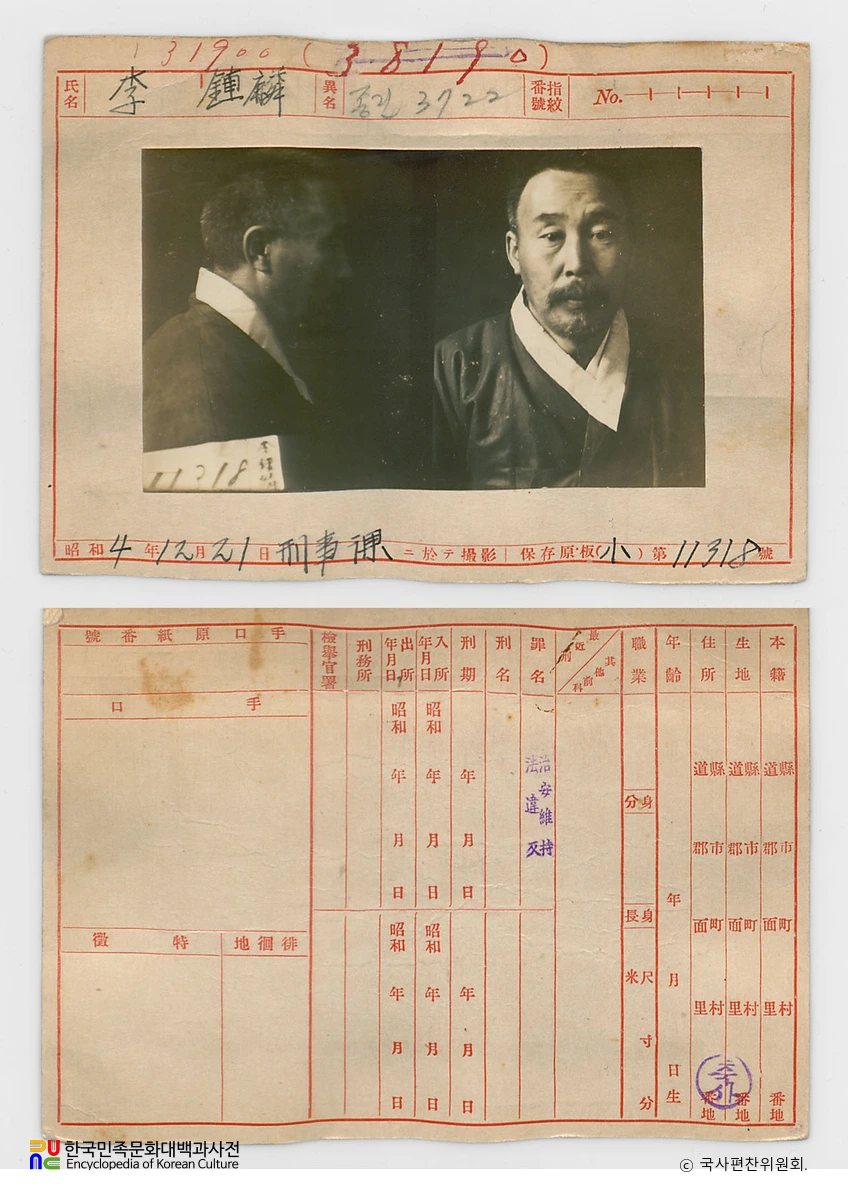 31900 (38190)
氏名 李 鍾麟 異名 종린 3722 指紋番號 No.
11318
昭和 4 年 12 月 21 日 刑事課 ニ於テ撮影 保存原板(小) 第 11318 號
手口原紙番號
手口
特徵
徘徊地
檢擧官署
刑務所
出所年月日
入所年月日
刑期
刑名
罪名
最近刑
其他前科
職業
年齡
住所
生地
本籍
昭和 年 月 日
昭和 年 月 日
年 月 日
治安維持法違反
身分
身長
尺 寸 分
米
年 月 日生
道縣 郡市 面町 里村 番地
道縣 郡市 面町 里村 番地
道縣 郡市 面町 里村 番地
昭和 年 月 日
昭和 年 月 日
年 月 日
한국민족문화대백과사전
Encyclopedia of Korean Culture
© 국사편찬위원회.